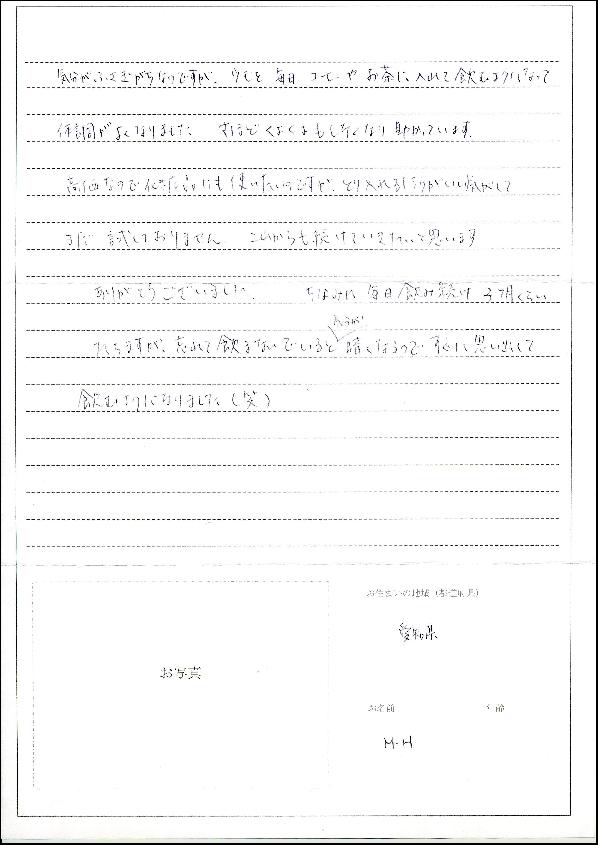 気分がふさぎがちなのですが、 毎日 コーヒーや お茶に入れて飲むようになって
体調がよくなりました さほど くよくよもしなくなり 助かっています
高価なので 使いたいのですが、とり入れる
まだ 試しておりません これからも続けていきたいと思います
ありがとうございました。 ちなみに 毎日飲み続け 3ヶ月くらい
たちますが、忘れて飲まないでいると 暗くなるので すぐに思い出して
飲むようになりました(笑)
お写真
お住まいの地域(都道府県)
愛知県
お名前 年齢
M・H